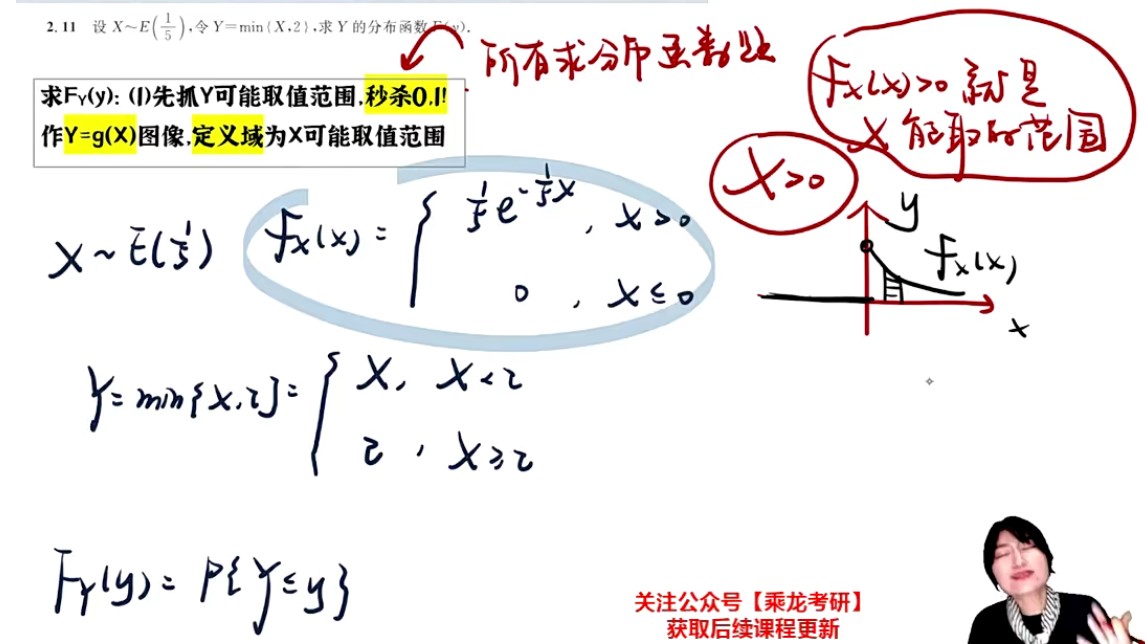 2.11 设 X~E(1/5),令 Y=min{X,2},求 Y 的分布函数 F(y).
所有求分布函数题
求Fᵧ(y): (1)先抓Y可能取值范围,秒杀0,1!
作Y=g(X)图像,定义域为X可能取值范围
fX(x)>0 就是
X 能取的范围
X>0
X ~ E(1/5) fX(x) = { 1/5 e^{-1/5 x} , x>0
0 , x≤0
y
fX(x)
x
Y = min{X,2} = { X, X<2
2 , X≥2
FY(y) = P{Y≤y}
关注公众号【乘龙考研】
获取后续课程更新